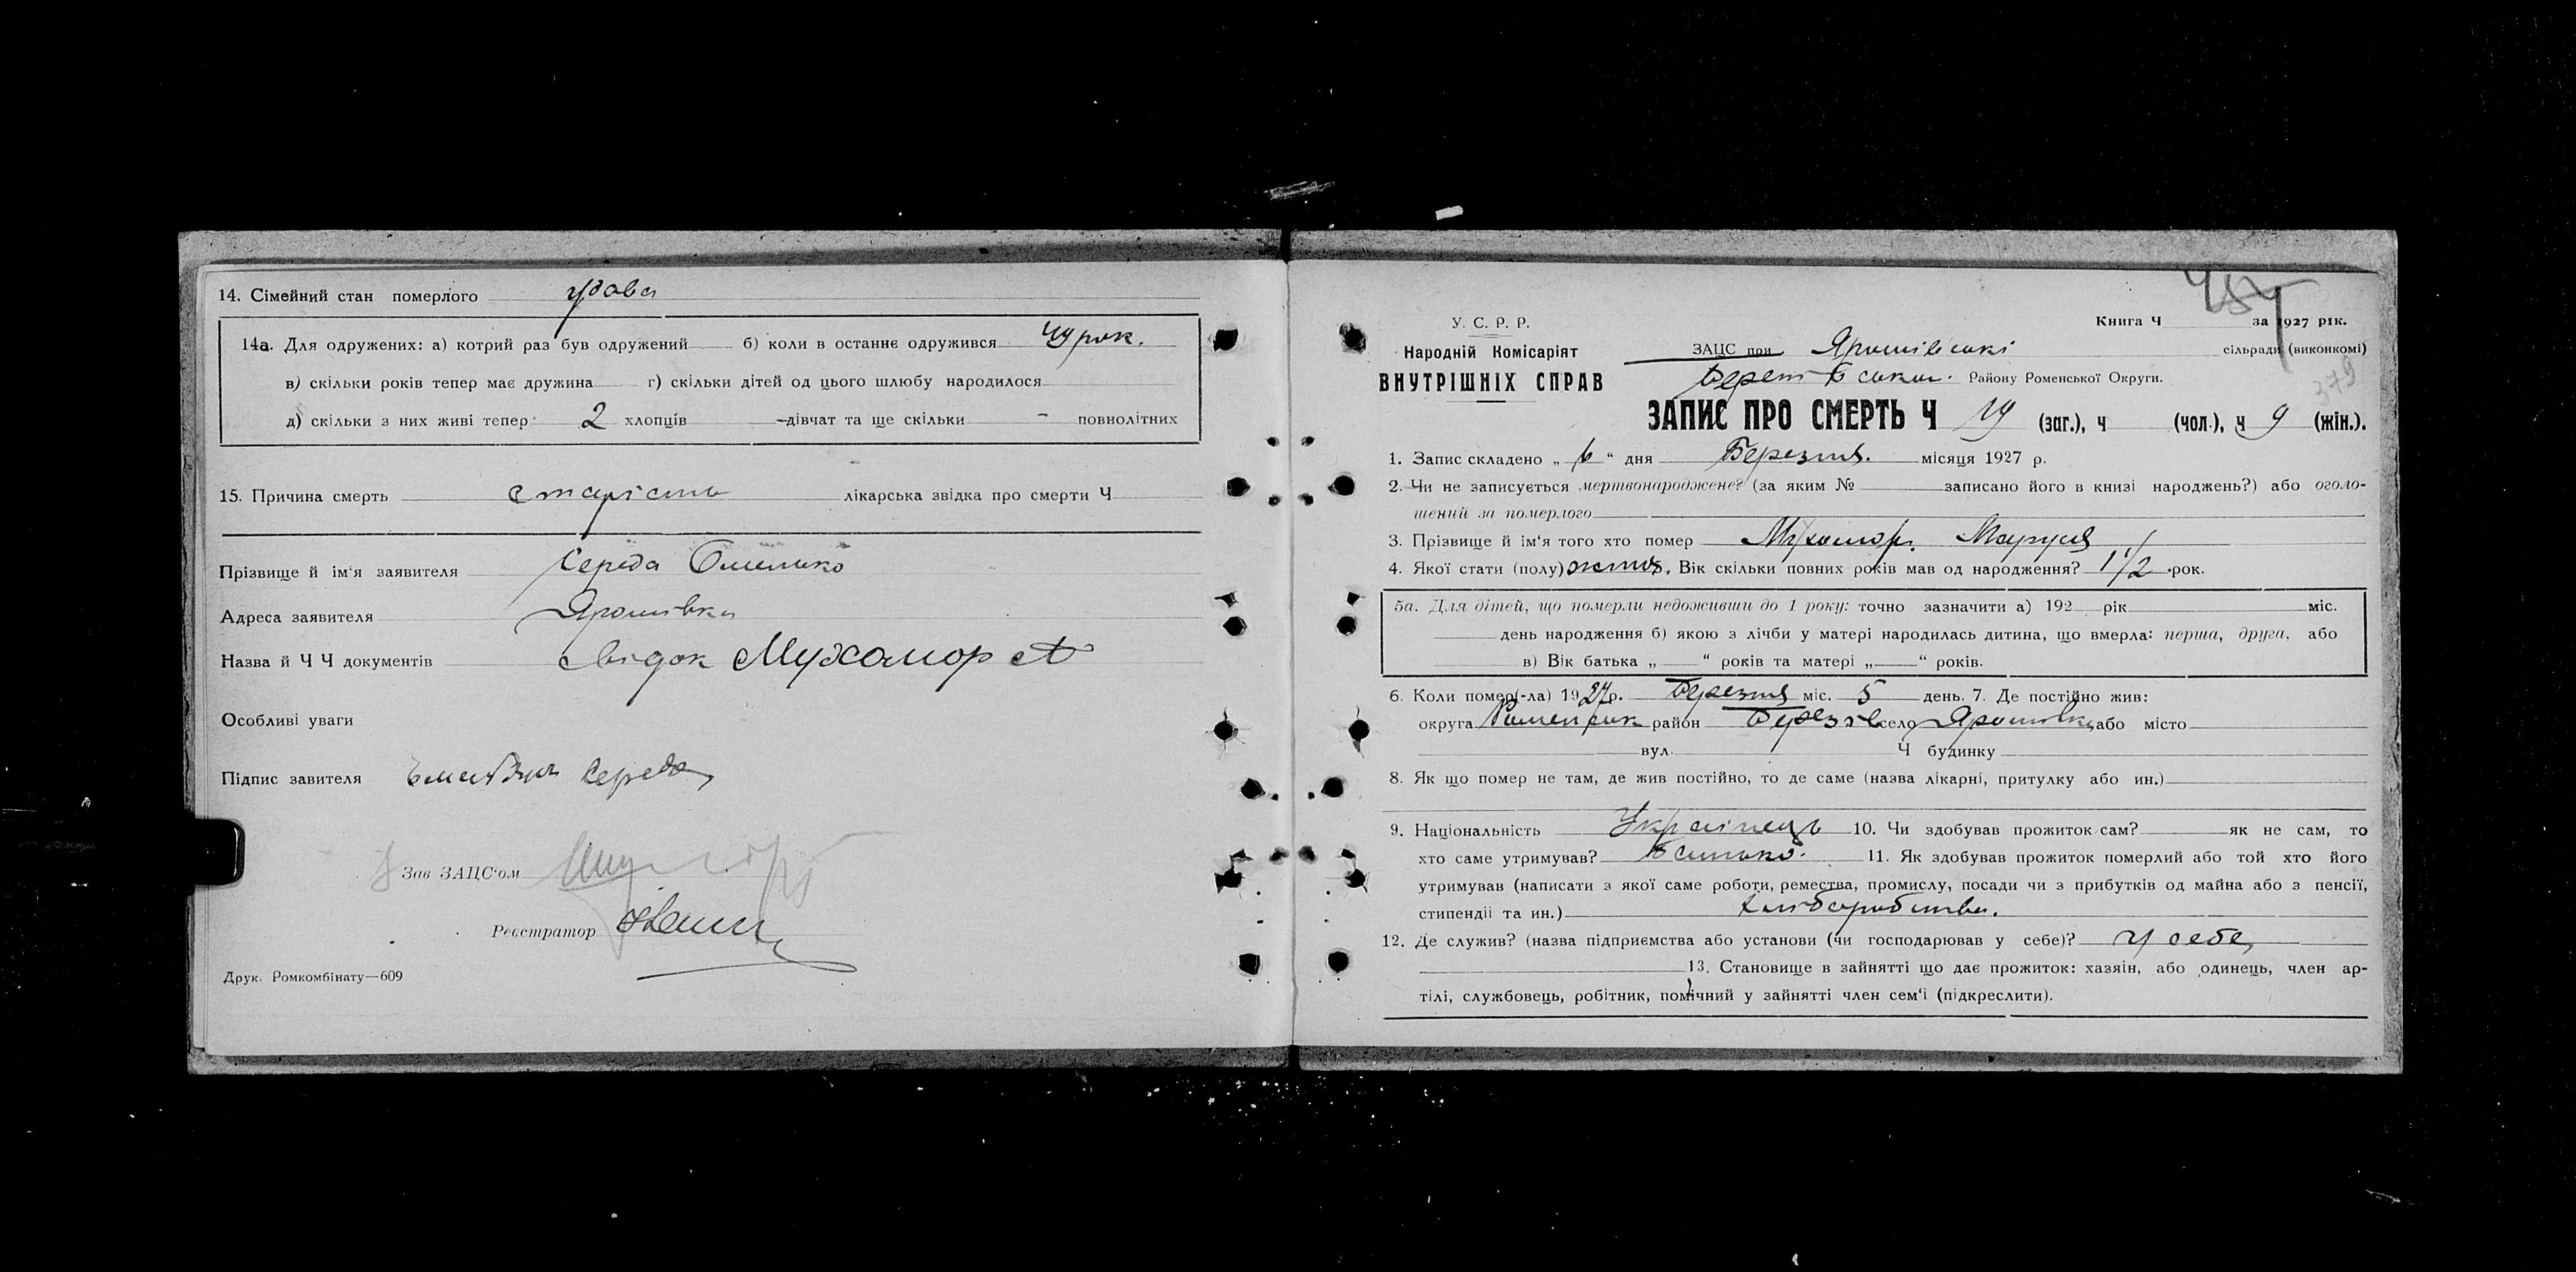 14. Сімейний стан померлого удова
14а. Для одружених: а) котрий раз був одружений б) коли в останнє одружився рок.
в) скільки років тепер має дружина г) скільки дітей од цього шлюбу народилося
д) скільки з них живі тепер 2 хлопців — дівчат та ще скільки — повнолітних
15. Причина смерть старість лікарська звідка про смерти Ч
Прізвище й ім'я заявителя Середа Омелько
Адреса заявителя Ярошівка
Назва й Ч Ч документів свідок Мухомор А
Особливі уваги
Підпис завителя Середа
Зав ЗАЦС'ом
Реєстратор
Друк. Ромкомбінату—609
У. С. Р. Р.
Народній Комісаріят
ВНУТРІШНІХ СПРАВ
Книга Ч за 1927 рік.
ЗАЦС при Ярошівські сільради (виконкомі)
Району Роменської Округи.
379
ЗАПИС ПРО СМЕРТЬ Ч 19 (заг.), ч (чол.), ч 9 (жін.).
1. Запис складено „ 6 “ дня Березня. місяця 1927 р.
2. Чи не записується мертвонароджене? (за яким № записано його в книзі народжень?) або оголо-
шений за померлого
3. Прізвище й ім'я того хто помер Мухомор. Маруся
4. Якої стати (полу) жіноч. Вік скільки повних років мав од народження? 1 1/2 рок.
5а. Для дітей, що померли недоживши до 1 року: точно зазначити а) 192 рік міс.
день народження б) якою з лічби у матері народилась дитина, що вмерла: перша, друга, або
в) Вік батька „ “ років та матері „ “ років.
6. Коли помер(-ла) 1927р. Березня міс. 5 день. 7. Де постійно жив:
округа Роменськ район Березів село Ярошівка або місто
вул. Ч будинку
8. Як що помер не там, де жив постійно, то де саме (назва лікарні, притулку або ин.)
9. Національність Українець 10. Чи здобував прожиток сам? як не сам, то
хто саме утримував? батько. 11. Як здобував прожиток померлий або той хто його
утримував (написати з якої саме роботи, ремества, промислу, посади чи з прибутків од майна або з пенсії,
стипендії та ин.) хліборобства.
12. Де служив? (назва підприємства або установи (чи господарював у себе)? у себе
13. Становище в зайнятті що дає прожиток: хазяін, або одинець, член ар-
тілі, службовець, робітник, помічний у зайнятті член сем'і (підкреслити).